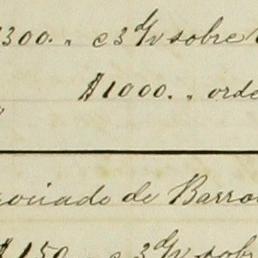 300. „ e 3 d/v sobre
$1000. „ orde
ociado de Barro
$150 e 3 d/v sob